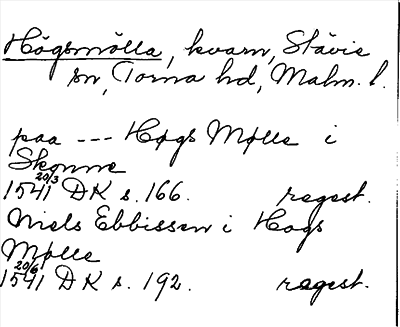 Högsmölla, kvarn, Stävie
sn, Torna hd, Malm. l.
paa --- Hogs Mølle i
Skonne
1541 20/3 DK s. 166. regest.
Niels Ebbissen i Hogs
Mølle
1541 20/6 DK s. 192. regest.